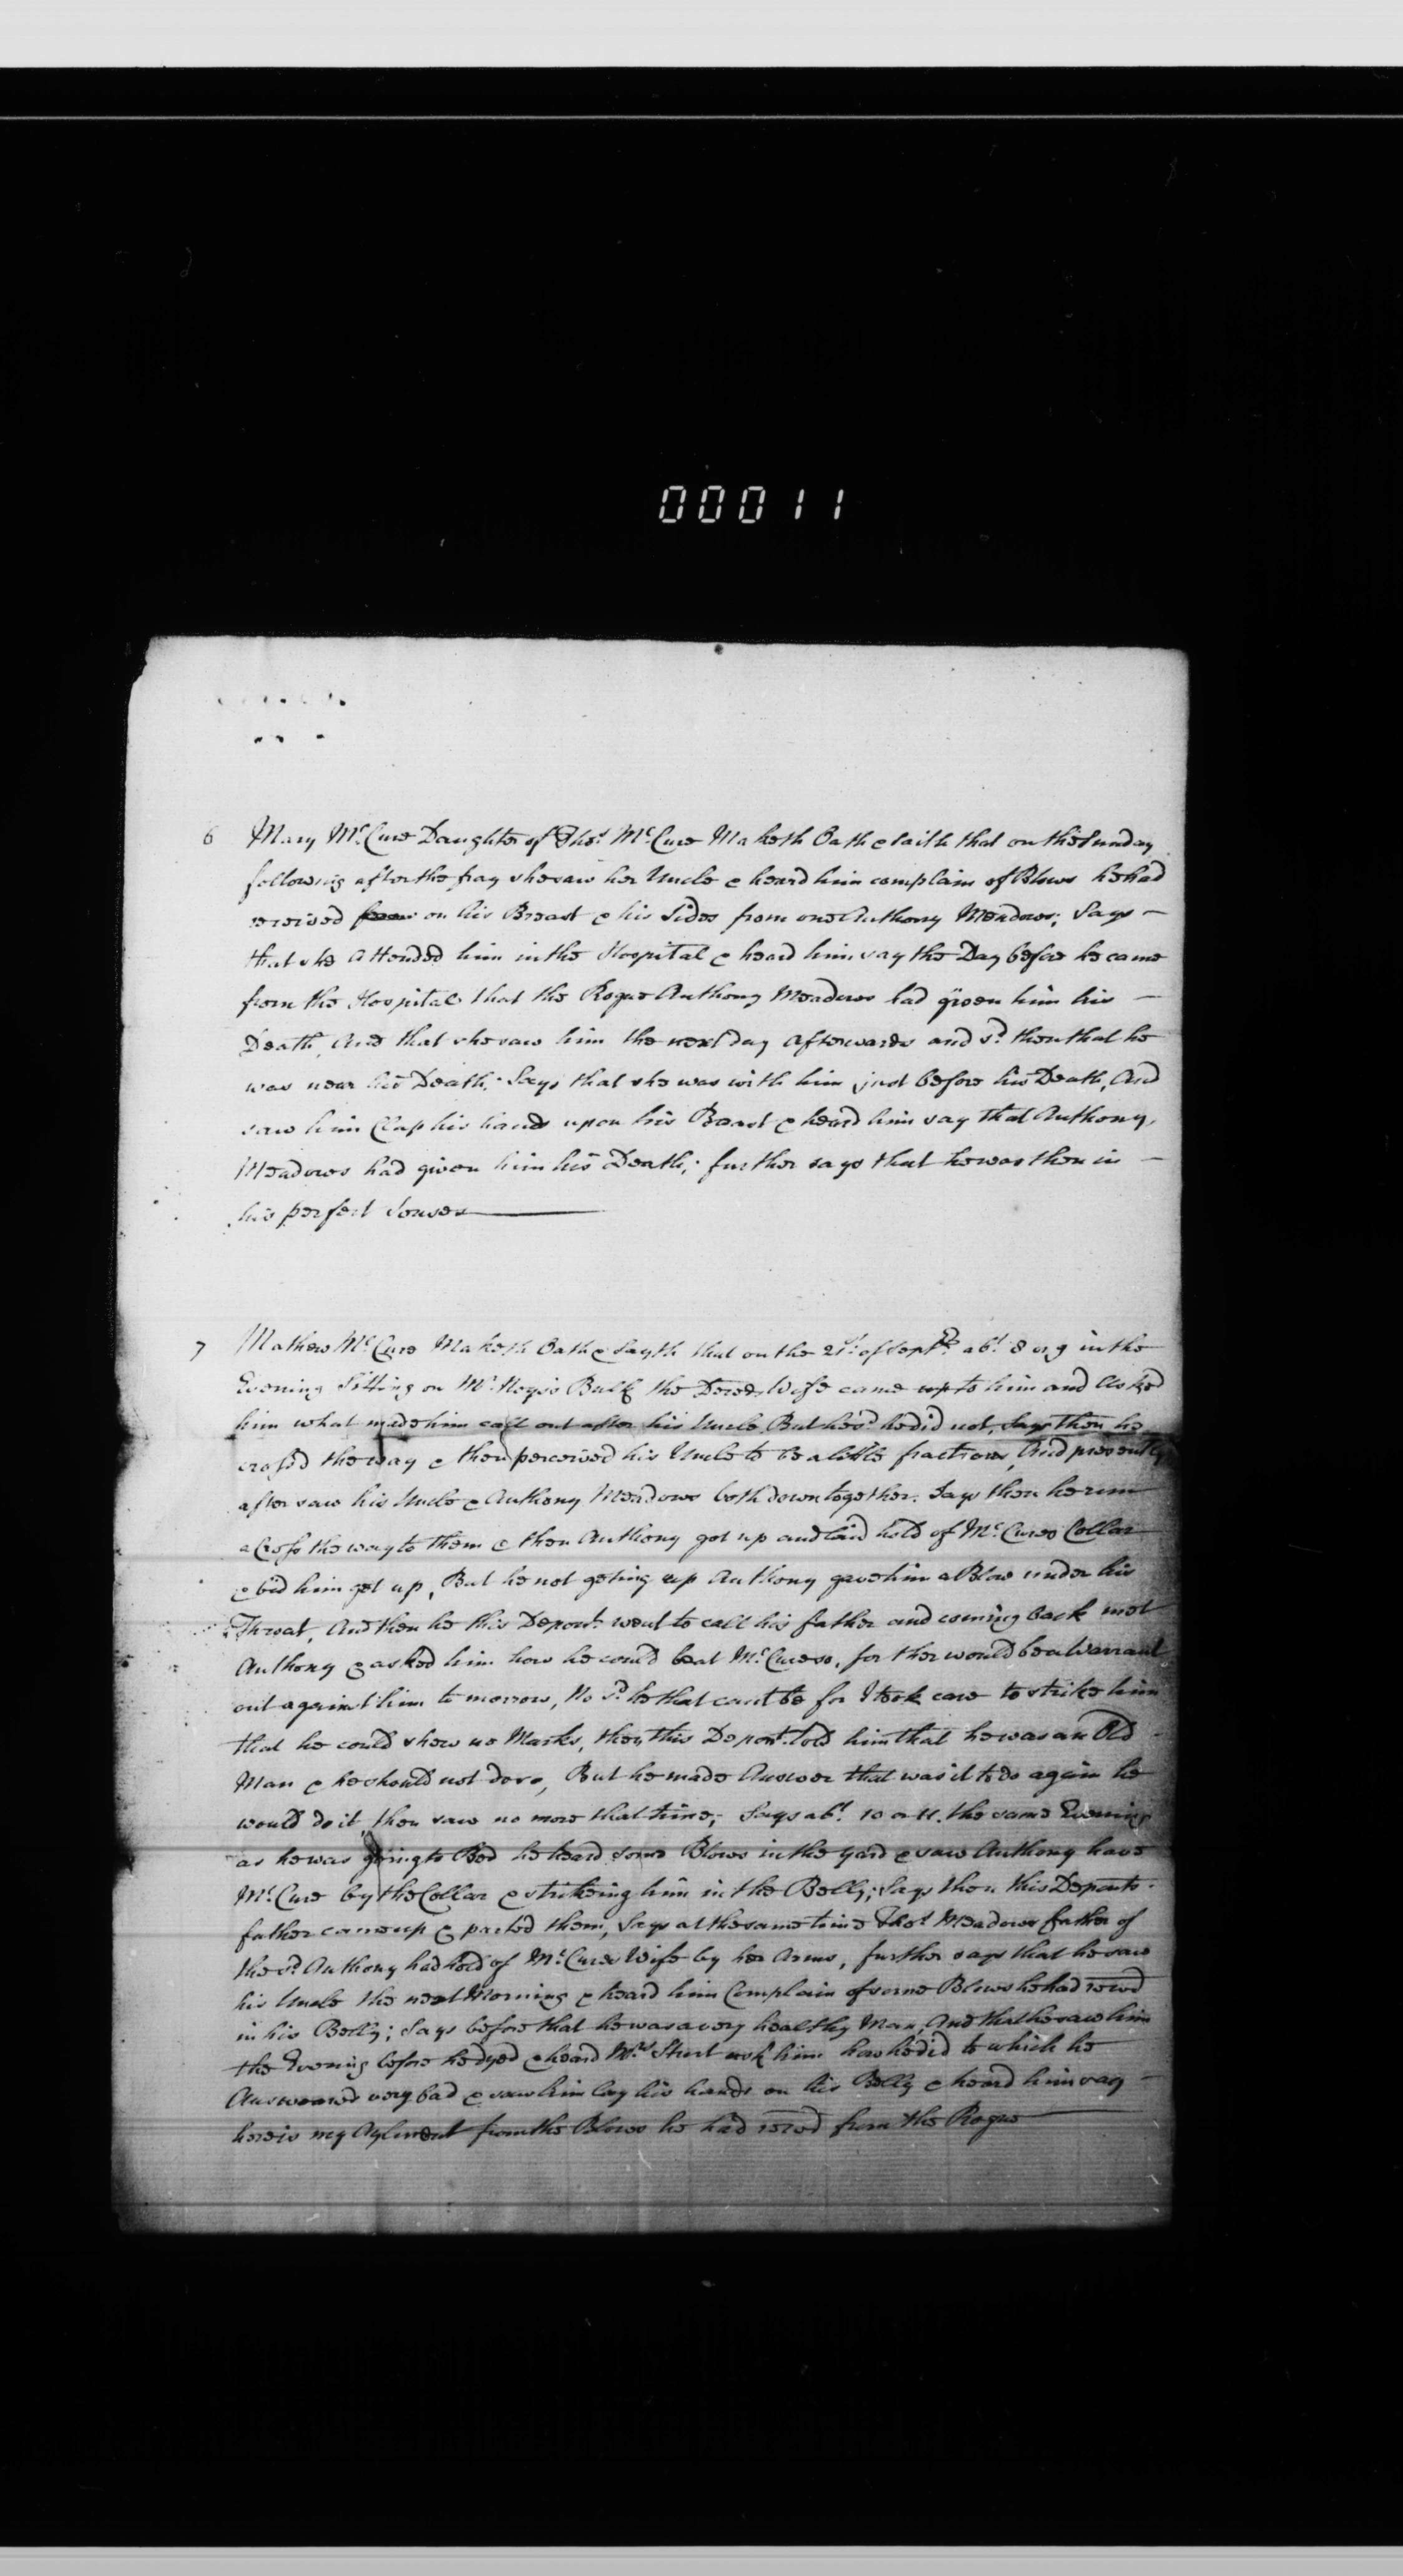 00011
6 Mary McCure Daughter of Thos. McCure Maketh Oath & saith that on the Sunday
following after the fray she saw her Uncle & heard him complain of Blows he had
received on his Breast & his Sides from one Anthony Meadows; Says —
that she attended him in the Hospital & heard him say the Day before he came
from the Hospital that the Rogue Anthony Meadows had given him his —
Death, And that she saw him the next day afterwards and sd. then that he
was near his Death; Says that she was with him just before his Death, And
saw him Clap his hands upon his Breast & heard him say that Anthony
Meadows had given him his Death; further says that he was then in —
his perfect Senses
7 Mathew McCure Maketh Oath & Sayth that on the 21st. of Septr. abt. 8 or 9 in the
Evening Sitting on Mr. Bulk the Deced. Wife came up to him and Asked
him what made him call out after his Uncle, But he sd. he did not, Says then he
crossd the way & then perceived his Uncle to be a little fractious, And presently
after saw his Uncle & Anthony Meadows both down together. Says then he run
a Cross the way to them & then Anthony got up and laid hold of McCures Collar
& bid him get up, But he not geting up Anthony gave him a Blow under his
Throat, And then he this Depont. went to call his father and coming back met
Anthony & asked him how he could beat McCure so, for ther would be a Warrant
out against him to morrow, No sd. he that cant be for I took care to strike him
that he could shew no Marks, then this Depont. told him that he was an Old
Man & he should not do so, But he made Answer that was it to do again he
would do it, then saw no more that time; Says abt. 10 or 11. the same Evening
as he was going to Bed he heard some Blows in the yard & saw Anthony have
McCure by the Collar & strikeing him in the Belly; Says then this Deponts.
father came up & parted them, Says at the same time Thos. Meadows father of
the sd. Anthony had hold of McCures Wife by her Arms, further says that he saw
his Uncle the next Morning & heard him Complain of some Blows he had recd
in his Belly; Says before that he was a very healthy Man, And that he saw him
the Evening before he dyed & heard Mrs. ask him how he did to which he
Answered very bad & saw him lay his hands on his Belly & heard him say —
here is my Aylment from the Blows he had recd from the Rogue